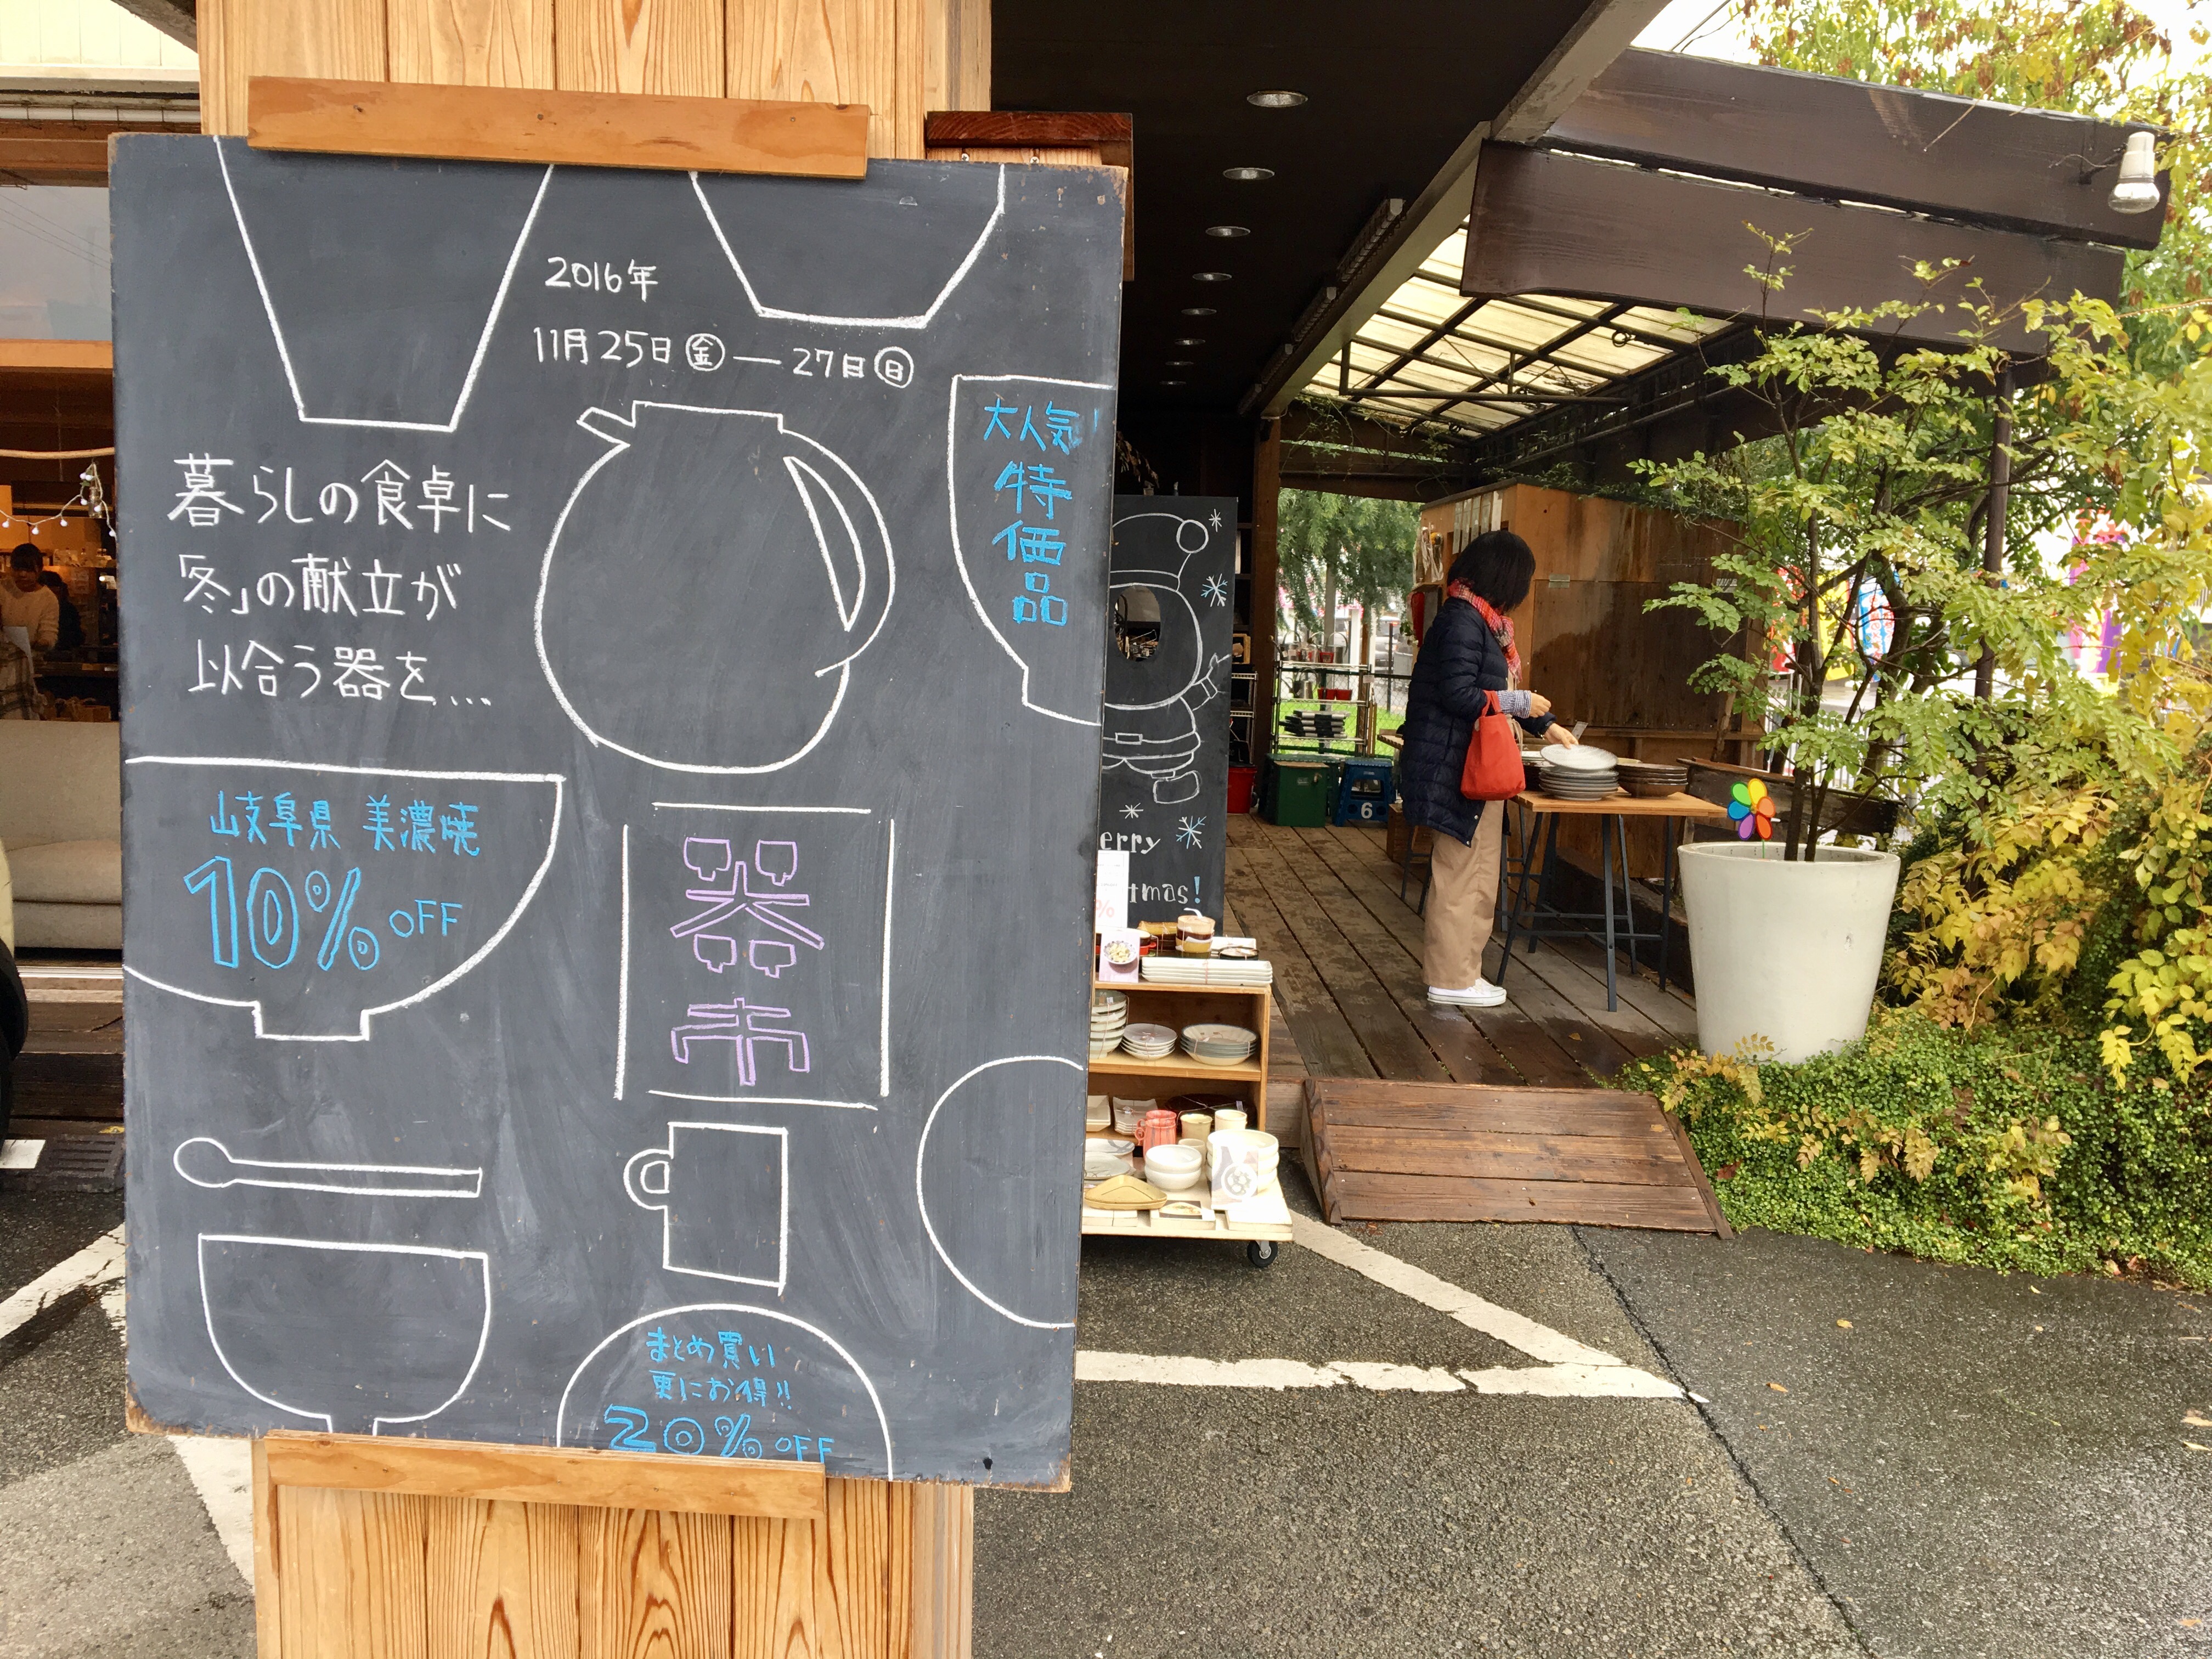 2016年
11月25日㊎—27日㊐
暮らしの食卓に
「冬」の献立が
似合う器を...
大人気!
特
価
品
岐阜県 美濃焼
10% OFF
器
市
まとめ買い
更にお得!!
20% OFF
erry
tmas!
%
6